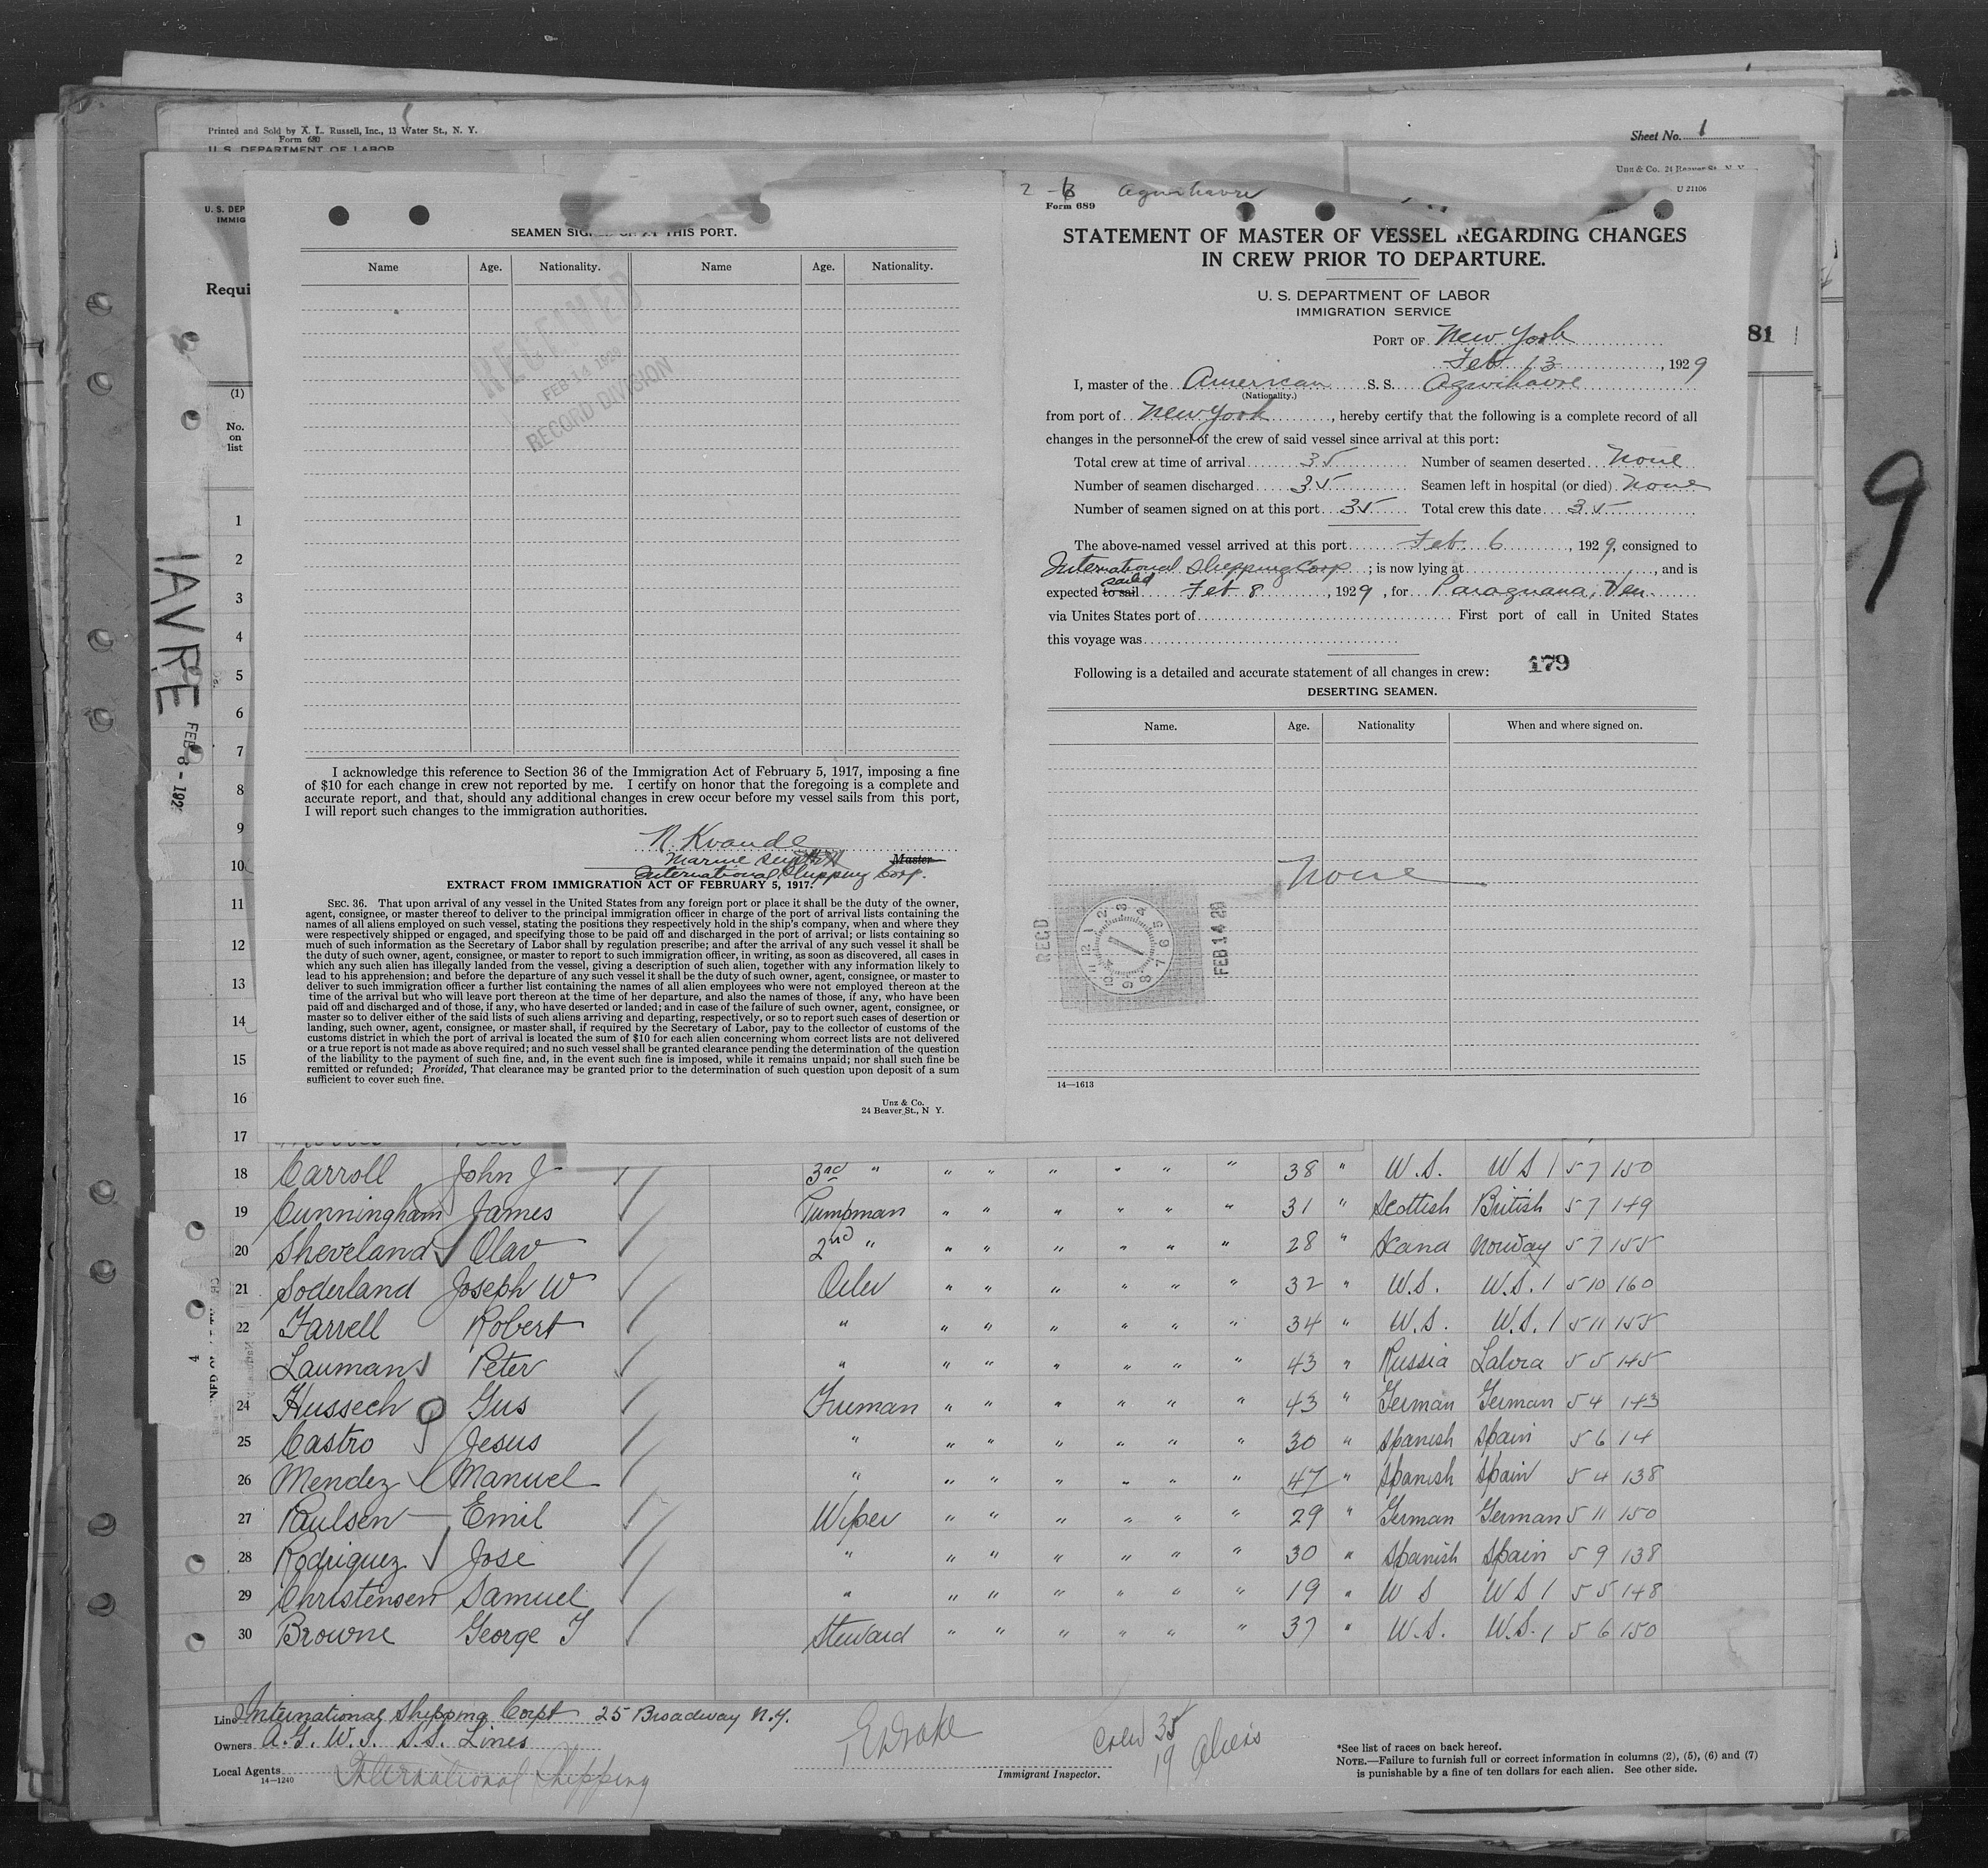 Printed and Sold by A. L. Russell, Inc., 13 Water St., N. Y.
Form 680
U. S. DEPARTMENT OF LABOR
Sheet No. 1
Unz & Co. 24 Beaver St., N. Y.
U 21106
U. S. DEP
IMMIG
Requi
(1)
No.
on
list
81
9
HAVRE
FEB 6 - 192
SEAMEN SIGNED ON AT THIS PORT.
Name Age. Nationality. Name Age. Nationality.
RECEIVED
FEB 14 1929
RECORD DIVISION
I acknowledge this reference to Section 36 of the Immigration Act of February 5, 1917, imposing a fine
of $10 for each change in crew not reported by me. I certify on honor that the foregoing is a complete and
accurate report, and that, should any additional changes in crew occur before my vessel sails from this port,
I will report such changes to the immigration authorities.
N. Kvande
Marine Supt
Master
International Shipping Corp.
EXTRACT FROM IMMIGRATION ACT OF FEBRUARY 5, 1917.
SEC. 36. That upon arrival of any vessel in the United States from any foreign port or place it shall be the duty of the owner,
agent, consignee, or master thereof to deliver to the principal immigration officer in charge of the port of arrival lists containing the
names of all aliens employed on such vessel, stating the positions they respectively hold in the ship's company, when and where they
were respectively shipped or engaged, and specifying those to be paid off and discharged in the port of arrival; or lists containing so
much of such information as the Secretary of Labor shall by regulation prescribe; and after the arrival of any such vessel it shall be
the duty of such owner, agent, consignee, or master to report to such immigration officer, in writing, as soon as discovered, all cases in
which any such alien has illegally landed from the vessel, giving a description of such alien, together with any information likely to
lead to his apprehension; and before the departure of any such vessel it shall be the duty of such owner, agent, consignee, or master to
deliver to such immigration officer a further list containing the names of all alien employees who were not employed thereon at the
time of the arrival but who will leave port thereon at the time of her departure, and also the names of those, if any, who have been
paid off and discharged and of those, if any, who have deserted or landed; and in case of the failure of such owner, agent, consignee, or
master so to deliver either of the said lists of such aliens arriving and departing, respectively, or so to report such cases of desertion or
landing, such owner, agent, consignee, or master shall, if required by the Secretary of Labor, pay to the collector of customs of the
customs district in which the port of arrival is located the sum of $10 for each alien concerning whom correct lists are not delivered
or a true report is not made as above required; and no such vessel shall be granted clearance pending the determination of the question
of the liability to the payment of such fine, and, in the event such fine is imposed, while it remains unpaid; nor shall such fine be
remitted or refunded; Provided, That clearance may be granted prior to the determination of such question upon deposit of a sum
sufficient to cover such fine.
Unz & Co.
24 Beaver St., N Y.
2 - B Agwihavre
Form 689
STATEMENT OF MASTER OF VESSEL REGARDING CHANGES
IN CREW PRIOR TO DEPARTURE.
U. S. DEPARTMENT OF LABOR
IMMIGRATION SERVICE
PORT OF New York
Feb 13, 1929
I, master of the American S. S. Agwihavre
(Nationality.)
from port of New York, hereby certify that the following is a complete record of all
changes in the personnel of the crew of said vessel since arrival at this port:
Total crew at time of arrival 35 Number of seamen deserted None
Number of seamen discharged 35 Seamen left in hospital (or died) None
Number of seamen signed on at this port 35 Total crew this date 35
The above-named vessel arrived at this port Feb. 6, 1929, consigned to
International Shipping Corp; is now lying at, and is
expected to sail sailed Feb 8, 1929, for Paraguana, Ven.
via Unites States port of First port of call in United States
this voyage was
Following is a detailed and accurate statement of all changes in crew: 179
DESERTING SEAMEN.
Name. Age. Nationality When and where signed on.
None
RECD
FEB 14 29
14—1613
1
2
3
4
5
6
7
8
9
10
11
12
13
14
15
16
17
18 Carroll John J 3rd " " " " " " " 38 " U.S. US 1 5 7 150
19 Cunningham James Pumpman " " " " " " 31 " Scottish British 5 7 149
20 Sheveland Olav 2nd " " " " " " " 28 " Scand Norway 5 7 155
21 Soderland Joseph W Oiler " " " " " " 32 " U.S. U.S. 1 5 10 160
22 Farrell Robert " " " " " " " 34 " U.S. U.S. 1 5 11 155
Laumans Peter " " " " " " " 43 " Russia 5 5 145
24 Hussech Gus Fireman " " " " " " 43 " German German 5 4 143
25 Castro Jesus " " " " " " " 30 " Spanish Spain 5 6 14
26 Mendez Manuel " " " " " " " 47 " Spanish Spain 5 4 138
27 Paulsen Emil Wiper " " " " " " 29 " German German 5 11 150
28 Rodriguez Jose " " " " " " " 30 " Spanish Spain 5 9 138
29 Christensen Samuel " " " " " " " 19 " U S U S 1 5 5 148
30 Browne George F Steward " " " " " " 37 " U.S. U.S. 1 5 6 150
Line International Shipping Corpt 25 Broadway N.Y.
Owners A. G. W. I. S.S. Lines
Local Agents International Shipping
14—1240
Immigrant Inspector.
Crew 35
19 Aliens
*See list of races on back hereof.
NOTE.—Failure to furnish full or correct information in columns (2), (5), (6) and (7)
is punishable by a fine of ten dollars for each alien. See other side.